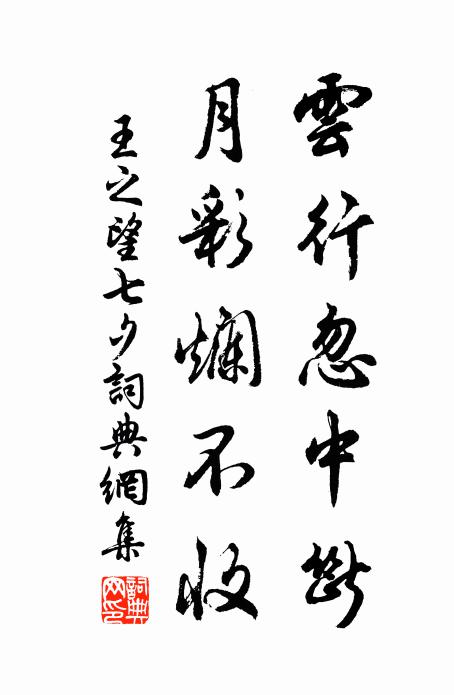 雲行忽中斷
月彩爛不收
王之望七夕詞典網集
詞典網印